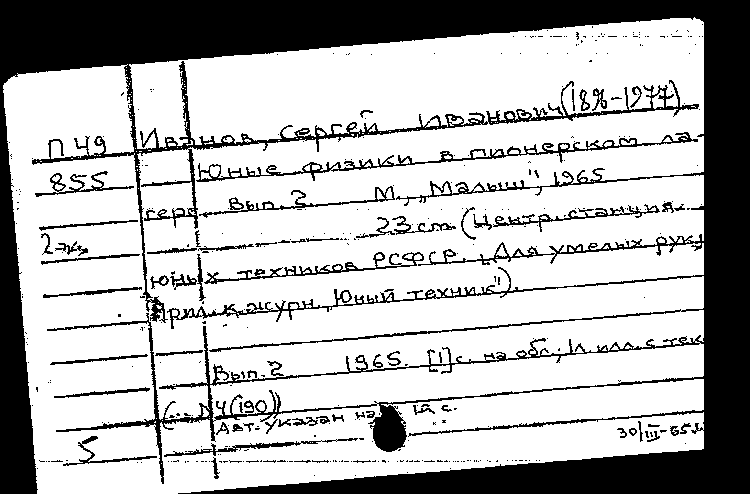 П 49 Иванов, Сергей Иванович (1896-1977)
855 Юные физики в пионерском ла-
гере. Вып. 2. М., "Малыш", 1965
2 экз. 23 см. (Центр. станция
юных техников РСФСР. "Для умелых рук",
Прил. к журн. "Юный техник").
Вып. 2 1965. [1] с. на обл.; 1 л. илл. с тек
(... N 4 (190))
Авт. указан на с.
5 30/III-65